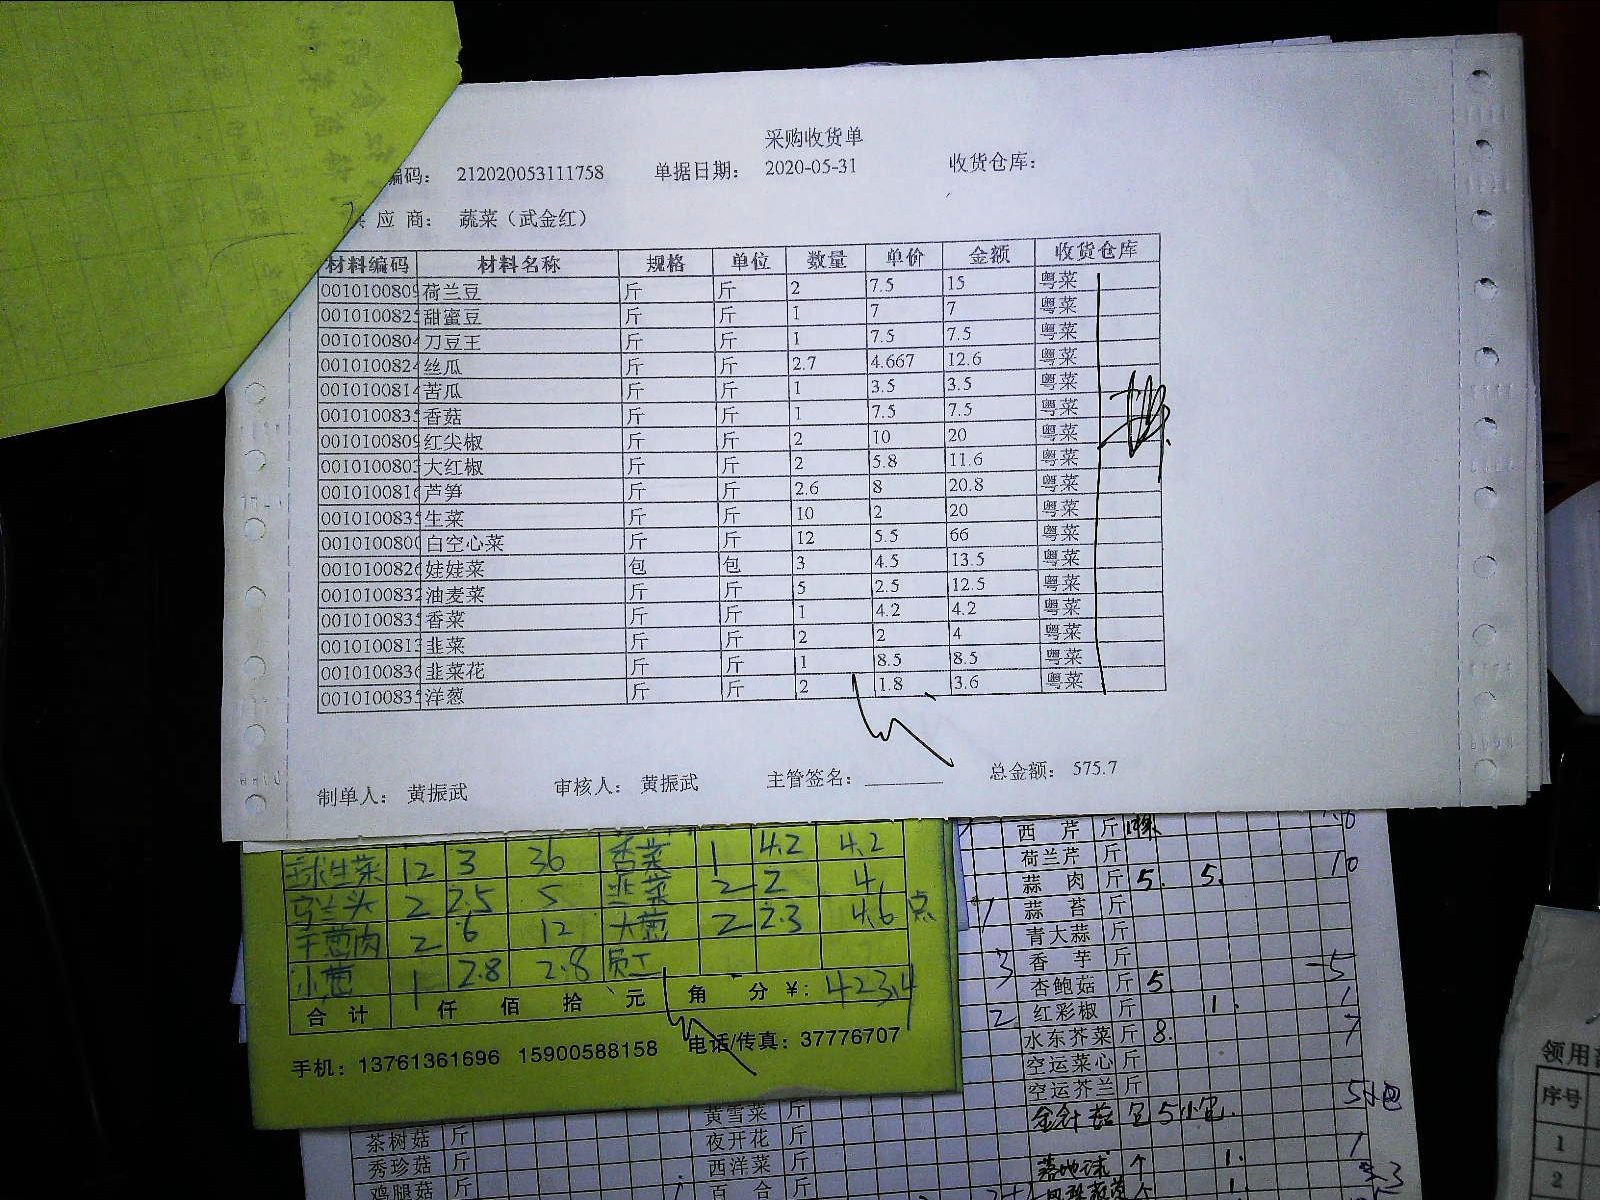 采购收货单
编码： 212020053111758 单据日期： 2020-05-31 收货仓库：
应 商： 蔬菜（武金红）
材料编码 材料名称 规格 单位 数量 单价 金额 收货仓库
0010100809 荷兰豆 斤 斤 2 7.5 15 粤菜
001010082 甜蜜豆 斤 斤 1 7 7 粤菜
001010080 刀豆王 斤 斤 1 7.5 7.5 粤菜
001010082 丝瓜 斤 斤 2.7 4.667 12.6 粤菜
001010081 苦瓜 斤 斤 1 3.5 3.5 粤菜
001010083 香菇 斤 斤 1 7.5 7.5 粤菜
0010100809 红尖椒 斤 斤 2 10 20 粤菜
001010080 大红椒 斤 斤 2 5.8 11.6 粤菜
001010081 芦笋 斤 斤 2.6 8 20.8 粤菜
001010083 生菜 斤 斤 10 2 20 粤菜
001010080 白空心菜 斤 斤 12 5.5 66 粤菜
001010082 娃娃菜 包 包 3 4.5 13.5 粤菜
001010083 油麦菜 斤 斤 5 2.5 12.5 粤菜
001010083 香菜 斤 斤 1 4.2 4.2 粤菜
001010081 韭菜 斤 斤 2 2 4 粤菜
001010083 韭菜花 斤 斤 1 8.5 8.5 粤菜
001010083 洋葱 斤 斤 2 1.8 3.6 粤菜
制单人： 黄振武 审核人： 黄振武 主管签名： 总金额： 575.7
球生菜 12 3 36 香菜 1 4.2 4.2
马兰头 2 2.5 5 韭菜 2 2 4
干葱肉 2 6 12 大葱 2 2.3 4.6 点
小葱 1 2.8 2.8 员工
合 计 仟 佰 拾 元 角 分 ¥: 423.4
手机：13761361696 15900588158 电话/传真：37776707
西 芹 斤
荷兰芹 斤 10
蒜 肉 斤 5. 5.
蒜 苔 斤
青大蒜 斤
3 香 芋 斤 5
杏鲍菇 斤 5. 1
2 红彩椒 斤 1. 7
水东芥菜 斤 8.
空运菜心 斤
空运芥兰 斤 5小包
金针菇 包 5小包.
黄雪菜 斤
茶树菇 斤 夜开花 斤
秀珍菇 斤 西洋菜 斤 落地球 个 1.
鸡腿菇 斤 百 合 斤
领用
序号
1
2